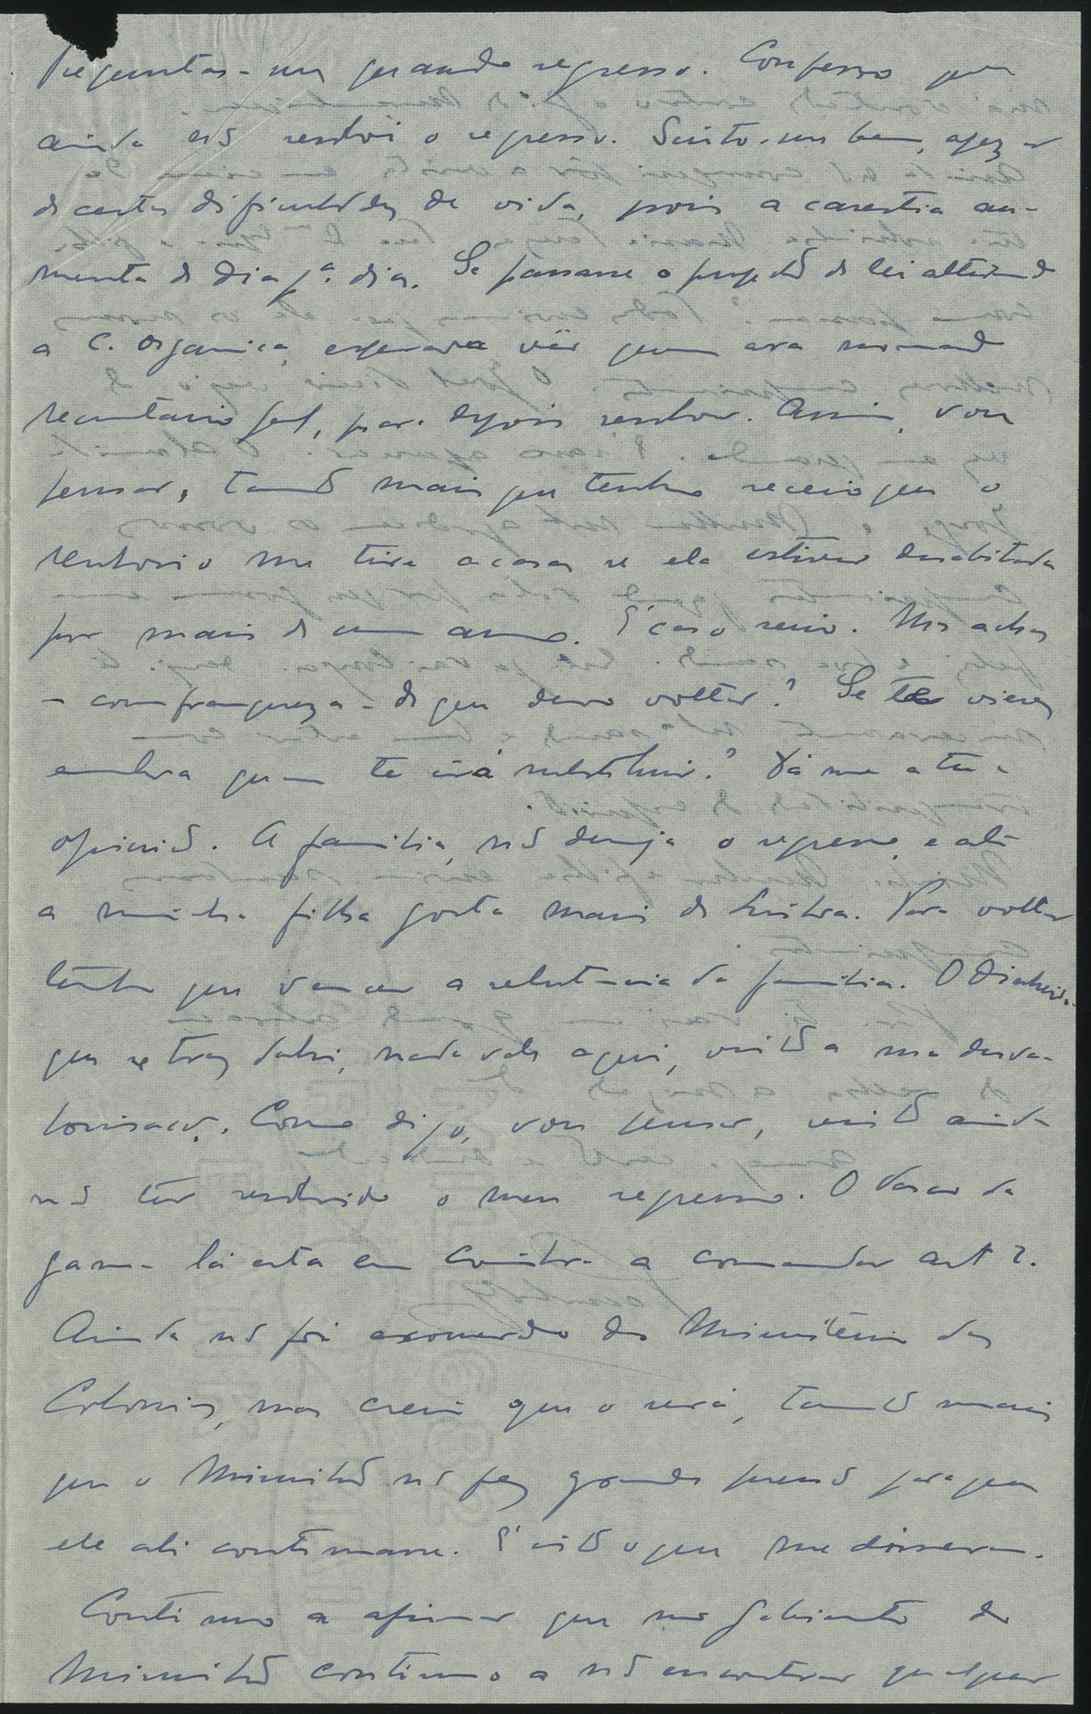 Preguntas-me quando regresso. Confesso que
ainda não resolvi o regresso. Sinto-me bem, apezar
de certas dificuldades de vida, pois a carestia au-
menta de dia pª dia. Se passasse o projecto de lei alterando
a C. Organica, esperava vêr quem era nomeado
secretario geral, para depois resolver. Assim, vou
pensar, tanto mais que tenho receio que o
senhorio me tire a casa se ela estiver desabitada
por mais de um ano. É caso serio. Mas achas
- com franqueza - de que devo voltar? Se te vieres
embora quem te irá substituir? Dá-me a tua
opinião. A familia, não deseja o regresso, e até
a minha filha gosta mais de Lisboa. Para voltar
tenho que vencer a relutancia da familia. O dinheiro
que se traz dahi, nada vale aqui, visto a sua desva-
lorisação. Como digo, vou pensar, visto ainda
não têr resolvido o meu regresso. O Vasco da
Gama lá está em Coimbra a comandar art 2.
Ainda não foi exonerado do Ministério das
Colonias, mas creio que o será, tanto mais
que o Ministro não fez grande pressão para que
ele ali continuasse. É isto o que me disseram.
Continuo a afirmar que no Gabinete do
Ministro continuo a não encontrar qualquer